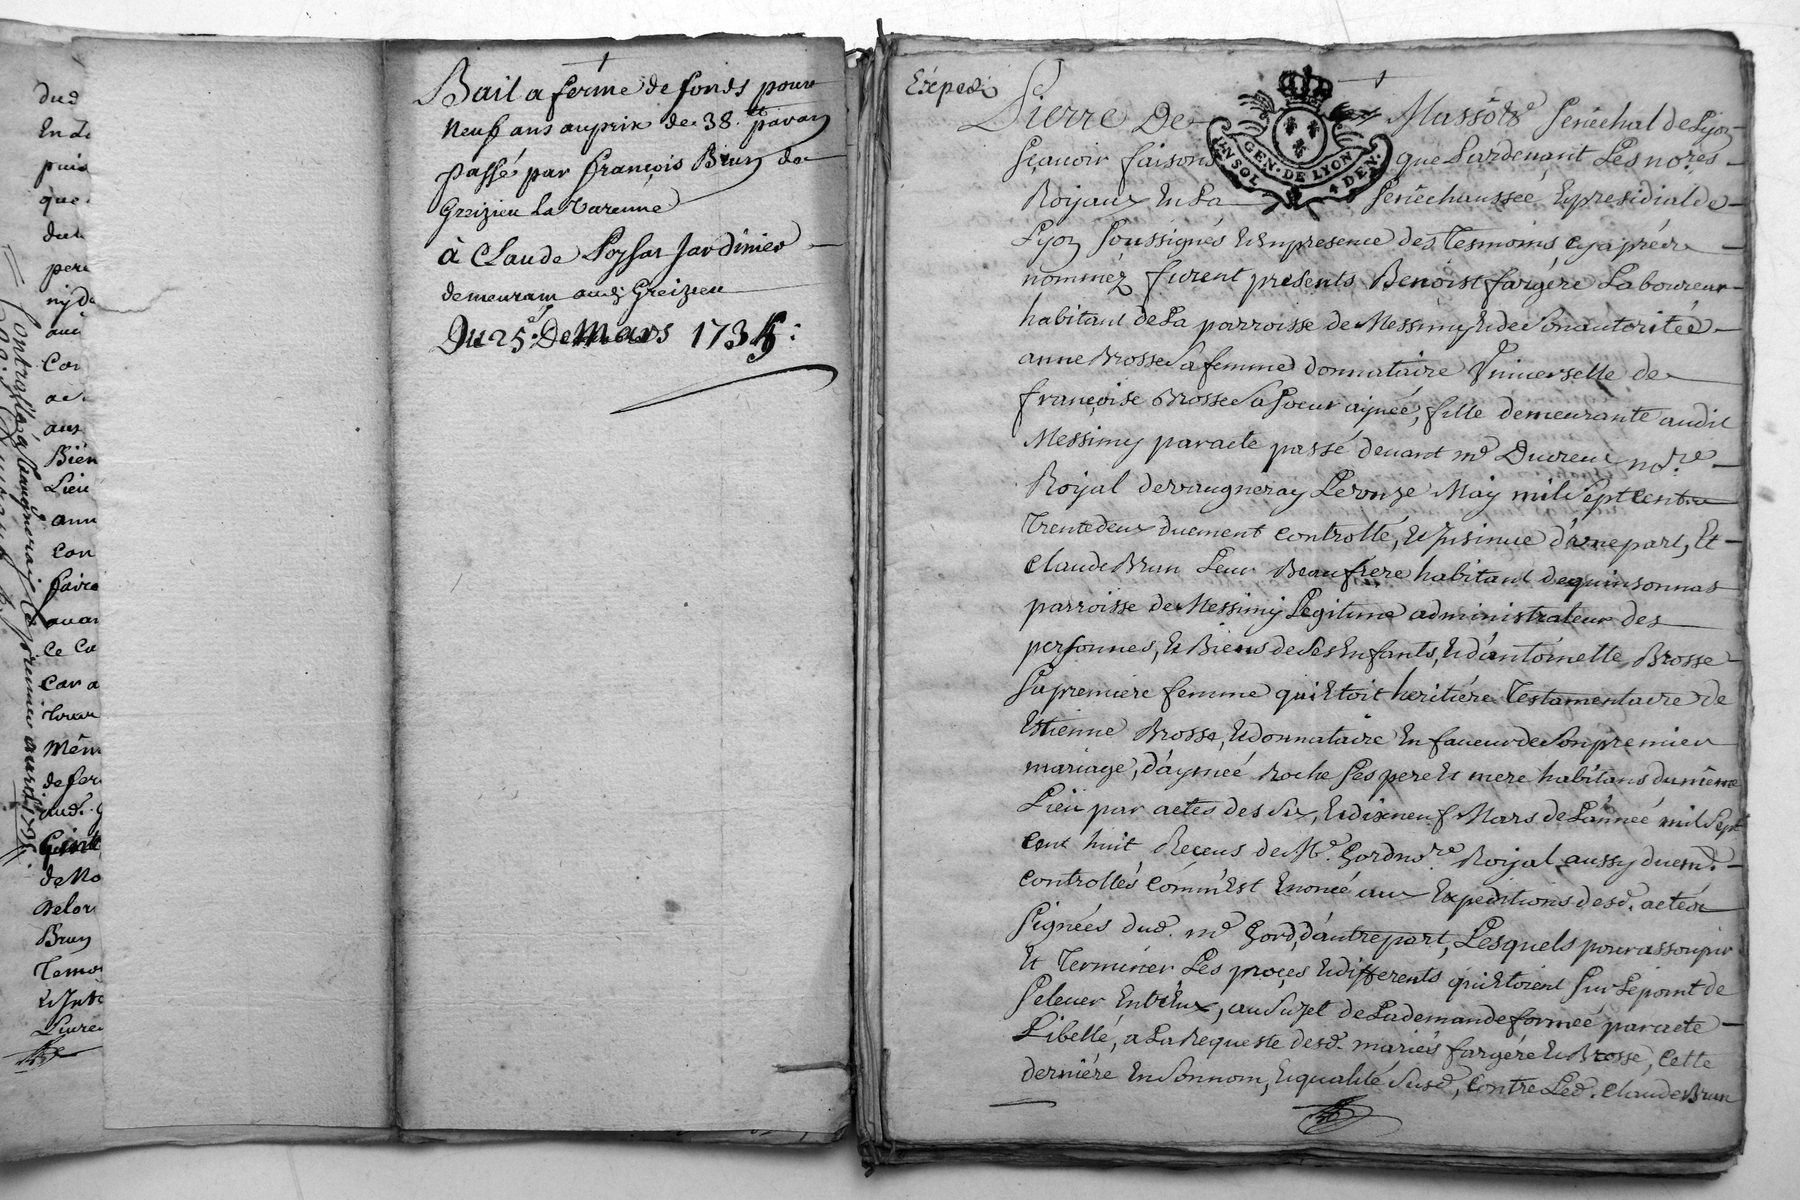 Bail a ferme de fonds pour
neuf ans au prix de 38.lt par an
passé par françois Brun de
Greizieu La Varenne
à Claude Poysat Jardinier
demeurant aud. Greizieu
Du 25e. De Mars 1735 :
Controllé à Vaugneray le premier avril 1735.
dud
En Le
puis
que
perc
ny de
Con
aus
Bien
Lieu
ann
con
faire
avan
ce Co
Car a
mêm
de fer
aud. G
de No
Brun
Temo
Livre
Expedié
Pierre De Massôt Senechal de Lyon
GEN. DE LYON
UN SOL 4 DEN.
sçavoir faisons que Pardevant Les nores.
Roijaux En La Senéchaussée Et presidial de
Lyon soussignés Et En presence des Tesmoins cy aprés
nommez furent presents Benoist fargére Laboureur
habitant de La parroisse de Messimy Et de Son autoritéé
anne Brosse Sa femme donnataire Universelle de
françoise Brosse Sa Soeur aynéé, fille demeurante audit
Messimy par acte passé devant me Ducreux nore.
Roijal de vaugneray Le onze May mil Sept Cent
Trente deux duement controllé, Et Insinué d'une part, Et
Claude Brun Leur Beaufrere habitant de quinsonnas
parroisse de Messimy Legitime administrateur des
personnes, Et Biens de Ses Enfants, Et d'antoinette Brosse
Sa premiere femme qui Etoit heritiére Testamentaire de
Estienne Brosse, Et donnataire En faveur de Son premier
mariage, d'ayméé Roche Ses pere Et mere habitans du même
Lieu par actes des Six, Et dixneuf Mars de L'annéé mil Sept
Cent huit Receus de Me. Gord nore Roijal aussy duemt.
controllés comm'Est Enoncé aux Expeditions desd. actes
Signées dud. me Gord, d'autre part, Lesquels pour assoupir
Et Terminer Les proçes Et differents qui Etoient Sur Le point de
S'elever Entr'Eux, au Sujet de La demande forméé par acte
Libellé, a La Requeste desd. mariés fargére Et Brosse, Cette
derniére En Son nom, Et qualité Susd., Contre Led. Claude Brun